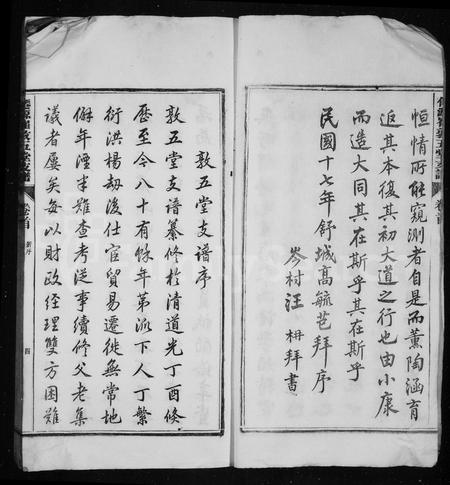 恒情所能窺測者自是而薰陶涵育
返其本復其初大道之行也由小康
而造大同其在斯乎其在斯乎
民國十七年舒城高毓芑拜序
岑村汪 枬拜書
敦五堂支譜序
敦五堂支譜纂修於清道光丁酉倏
歷至今八十有餘年第派下人丁繁
衍洪楊劫後仕宦貿易遷徙無常地
僻年湮半難查考從事續修父老集
議者屢矣每以財政經理雙方困難
卷首
新序
四